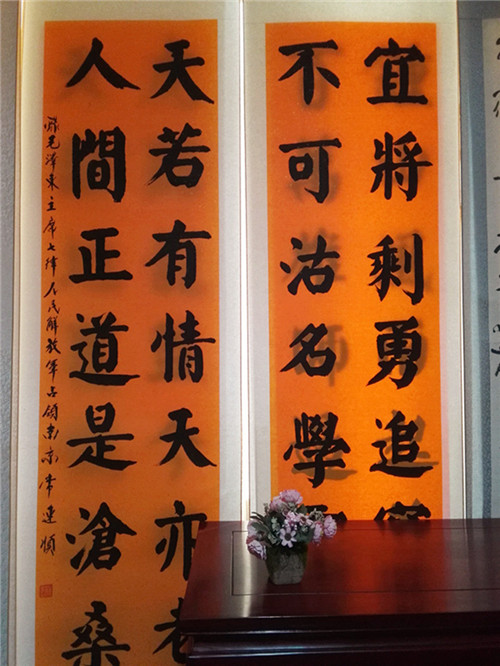 宜將剩勇追窮
不可沽名學
天若有情天亦老
人間正道是滄桑
录毛泽東主席七律人民解放軍占領南京常连順